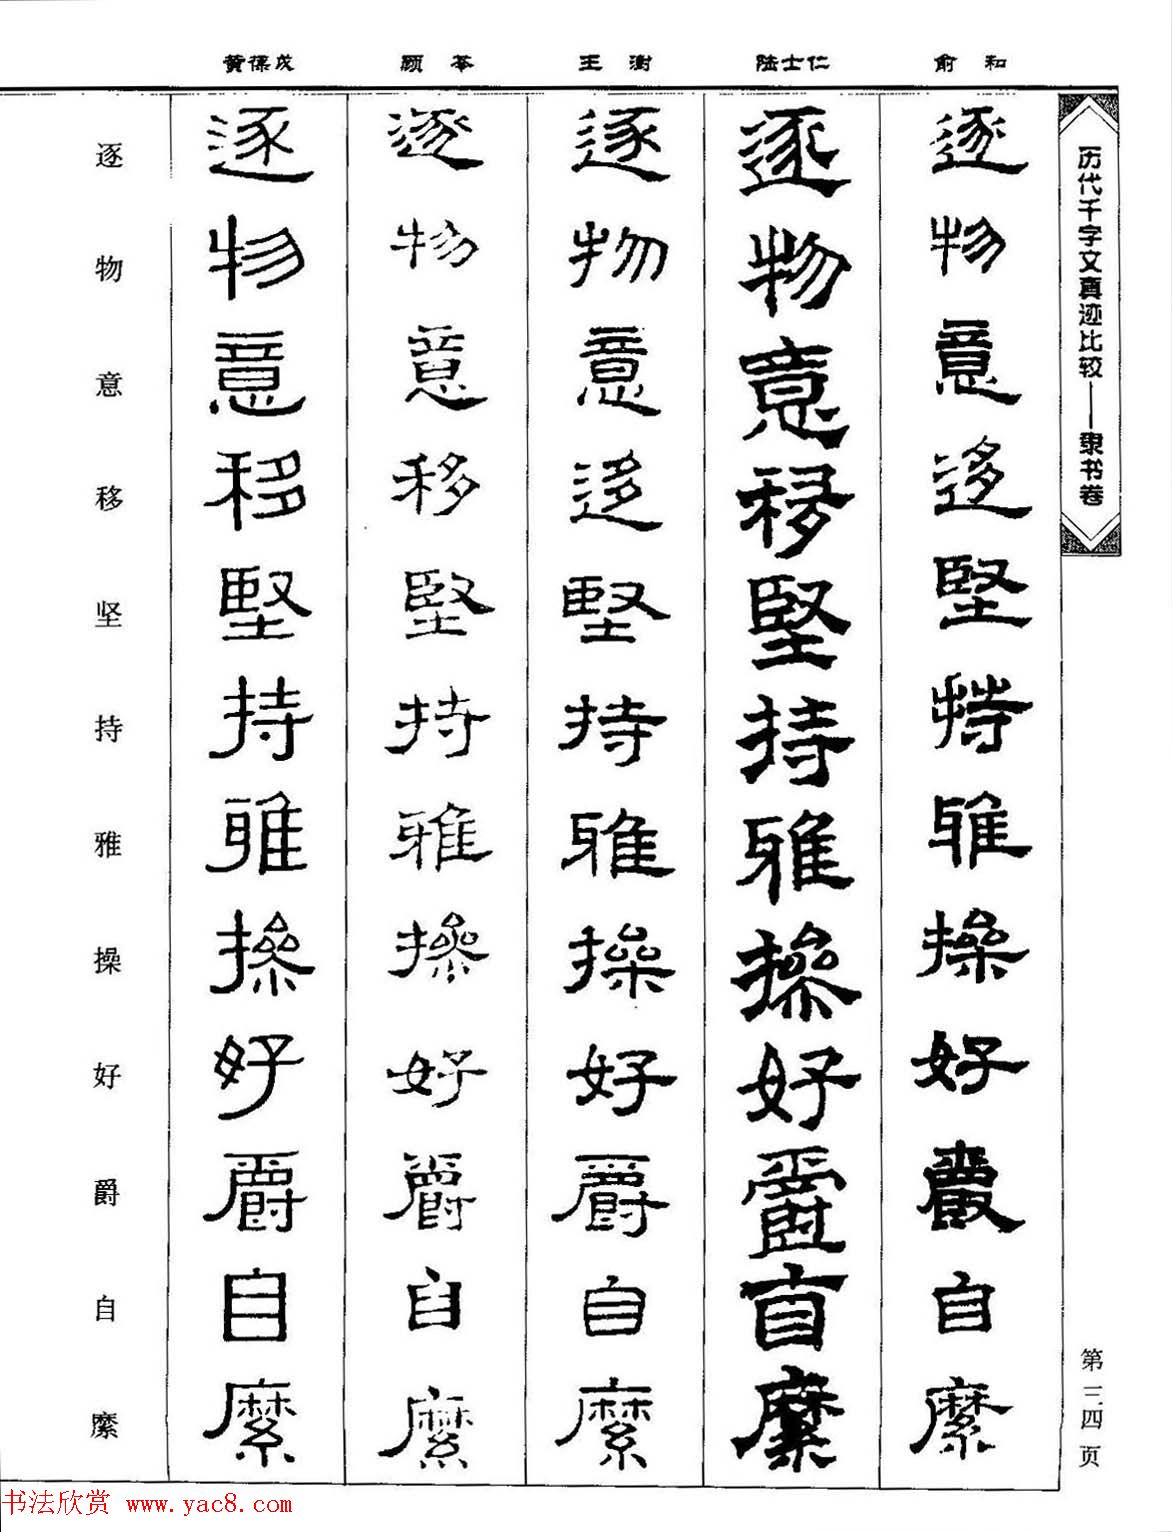 历代千字文真迹比较——隶书卷
第三四页
俞和
逐物意迻堅持雅操好爵自縻
陆士仁
逐物意移堅持雅操好爵自縻
王澍
逐物意迻堅持雅操好爵自縻
顾苓
逐物意移堅持雅操好爵自縻
黄葆戉
逐物意移堅持雅操好爵自縻
逐物意移坚持雅操好爵自縻
书法欣赏 www.yac8.com